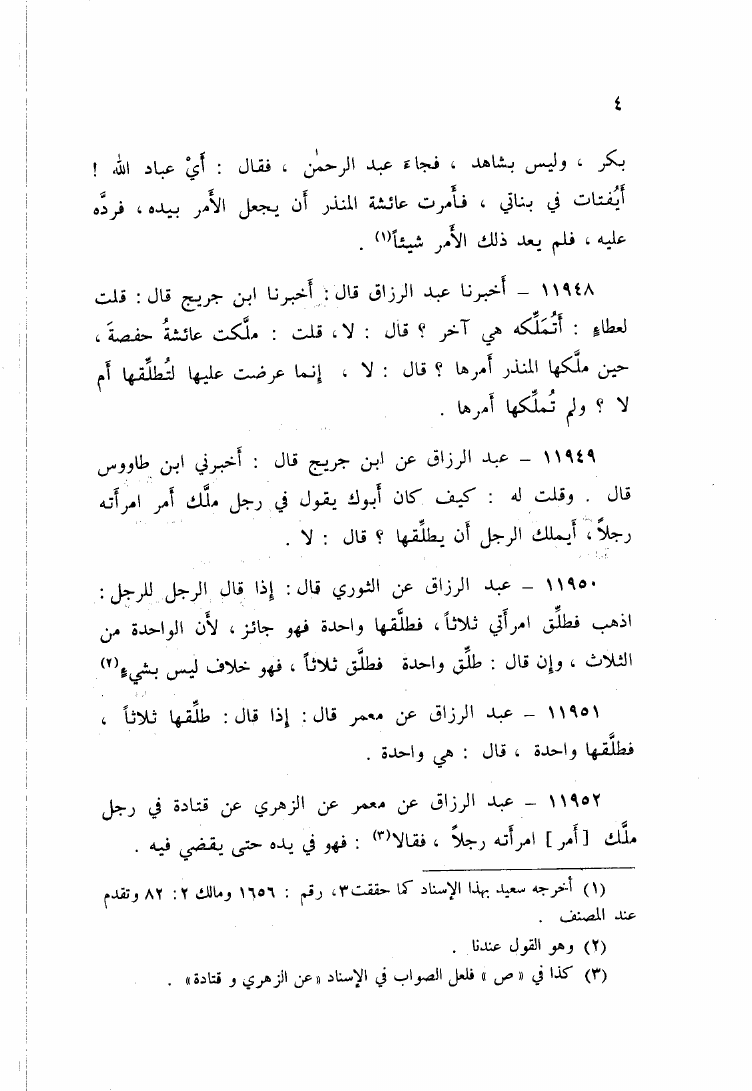 ٤
بكر ، وليس بشاهد ، فجاءَ عبد الرحمٰن ، فقال : أَيْ عباد الله !
أَيُفتات في بناتي ، فأَمرت عائشة المنذر أَن يجعل الأَمر بيده ، فردَّه
عليه ، فلم يعد ذلك الأَمر شيئاً(١) .
١١٩٤٨ – أَخبرنا عبد الرزاق قال : أَخبرنا ابن جريج قال : قلت
لعطاءٍ : أَتُمَلِّكه هي آخر ؟ قال : لا ، قلت : ملَّكت عائشةُ حفصةَ ،
حين ملَّكها المنذر أَمرها ؟ قال : لا ، إنما عرضت عليها لتُطلِّقها أَم
لا ؟ ولم تُملِّكها أَمرها .
١١٩٤٩ – عبد الرزاق عن ابن جريج قال : أَخبرني ابن طاووس
قال . وقلت له : كيف كان أَبوك يقول في رجل ملَّك أَمر امرأَته
رجلاً ، أَيملك الرجل أَن يطلِّقها ؟ قال : لا .
١١٩٥٠ – عبد الرزاق عن الثوري قال : إذا قال الرجل للرجل :
اذهب فطلِّق امرأَتي ثلاثاً ، فطلَّقها واحدة فهو جائز ، لأَن الواحدة من
الثلاث ، وإن قال : طلِّق واحدة فطلَّق ثلاثاً ، فهو خلاف ليس بشيءٍ(٢)
١١٩٥١ – عبد الرزاق عن معمر قال : إذا قال : طلِّقها ثلاثاً ،
فطلَّقها واحدة ، قال : هي واحدة .
١١٩٥٢ – عبد الرزاق عن معمر عن الزهري عن قتادة في رجل
ملَّك [ أَمر ] امرأَته رجلاً ، فقالا(٣) : فهو في يده حتى يقضي فيه .
(١) أخرجه سعيد بهذا الإسناد كما حققت٣، رقم : ١٦٥٦ ومالك ٢ : ٨٢ وتقدم
عند المصنف .
(٢) وهو القول عندنا .
(٣) كذا في « ص » فلعل الصواب في الإسناد «عن الزهري و قتادة» .